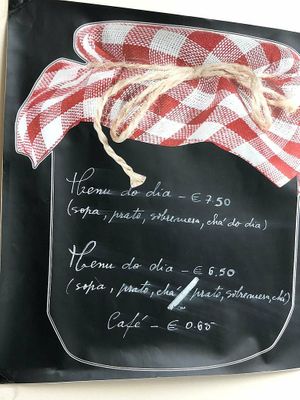 Menu do dia - € 7.50
(sopa, prato, sobremesa, chá do dia)
Menu do dia - € 6,50
(sopa, prato, chá / prato, sobremesa, chá)
Café - € 0.65